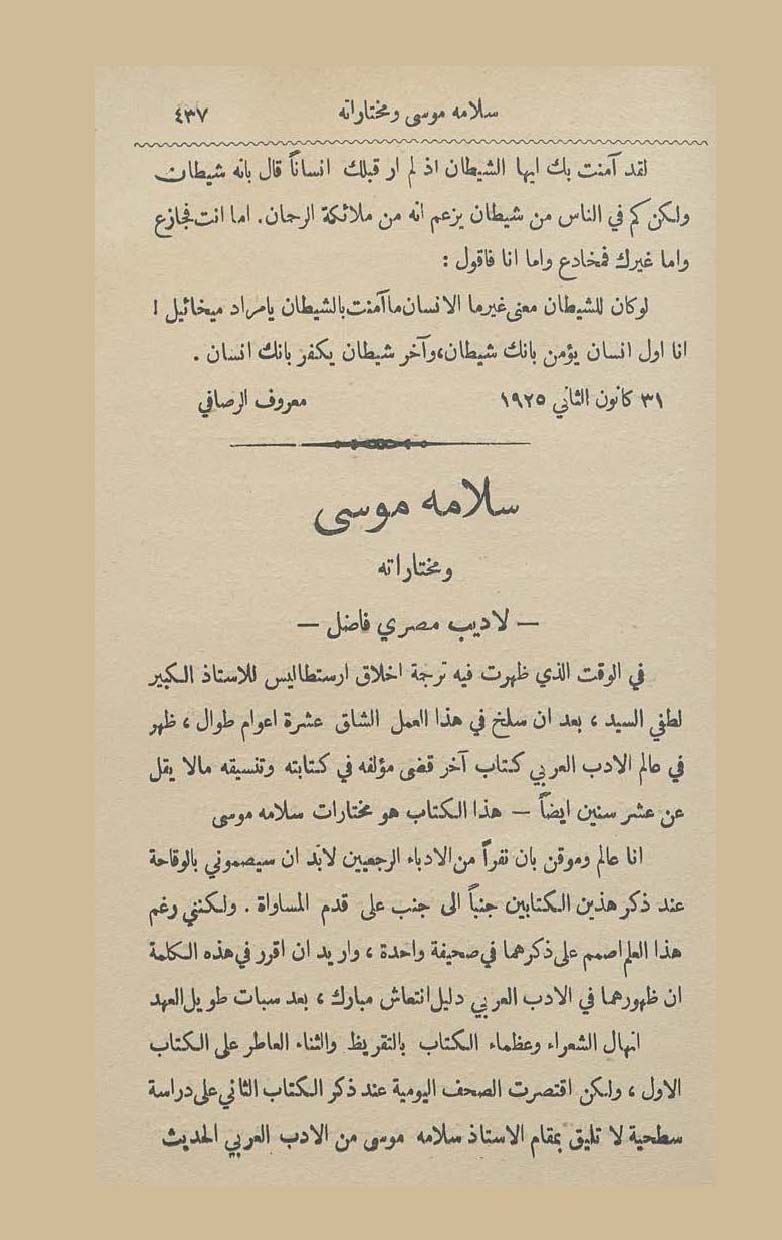 سلامه موسى ومختاراته ٤٣٧
لقد آمنت بك ايها الشيطان اذ لم ار قبلك انساناً قال بانه شيطان
ولكن كم في الناس من شيطان يزعم انه من ملائكة الرحمان . اما انت فجازع
واما غيرك فمخادع واما انا فاقول :
لو كان للشيطان معنى غير ما الانسان ما آمنت بالشيطان يامراد ميخائيل !
انا اول انسان يؤمن بانك شيطان، وآخر شيطان يكفر بانك انسان .
٣١ كانون الثاني ١٩٢٥ معروف الرصافي
سلامه موسى
ومختاراته
— لاديب مصري فاضل —
في الوقت الذي ظهرت فيه ترجمة اخلاق ارستطاليس للاستاذ الكبير
لطفي السيد ، بعد ان سلخ في هذا العمل الشاق عشرة اعوام طوال ، ظهر
في عالم الادب العربي كتاب آخر قضى مؤلفه في كتابته وتنسيقه مالا يقل
عن عشر سنين ايضاً — هذا الكتاب هو مختارات سلامه موسى
انا عالم وموقن بان نفراً من الادباء الرجعيين لابَد ان سيصموني بالوقاحة
عند ذكر هذين الكتابين جنباً الى جنب على قدم المساواة . ولكنني رغم
هذا العلم اصمم على ذكرهما في صحيفة واحدة ، واريد ان اقرر في هذه الكلمة
ان ظهورهما في الادب العربي دليل انتعاش مبارك ، بعد سبات طويل العهد
انهال الشعراء وعظماء الكتاب بالتقريظ والثناء العاطر على الكتاب
الاول ، ولكن اقتصرت الصحف اليومية عند ذكر الكتاب الثاني على دراسة
سطحية لا تليق بمقام الاستاذ سلامه موسى من الادب العربي الحديث